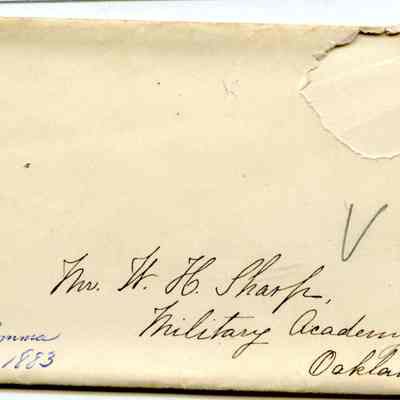 Mr. W. H. Sharp,
Military Academ
Oakla
1883